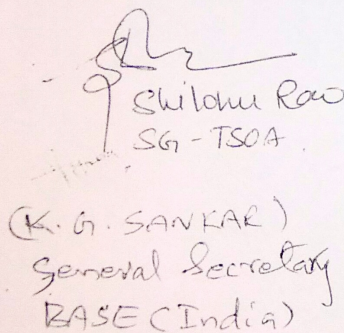 Shilohu Rao
SG-TSOA
(K. G. SANKAR)
General Secretary
BASE (India)